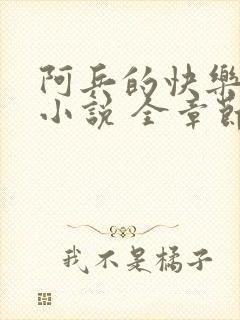 阿兵的快樂
小說 全章節
我不是橘子